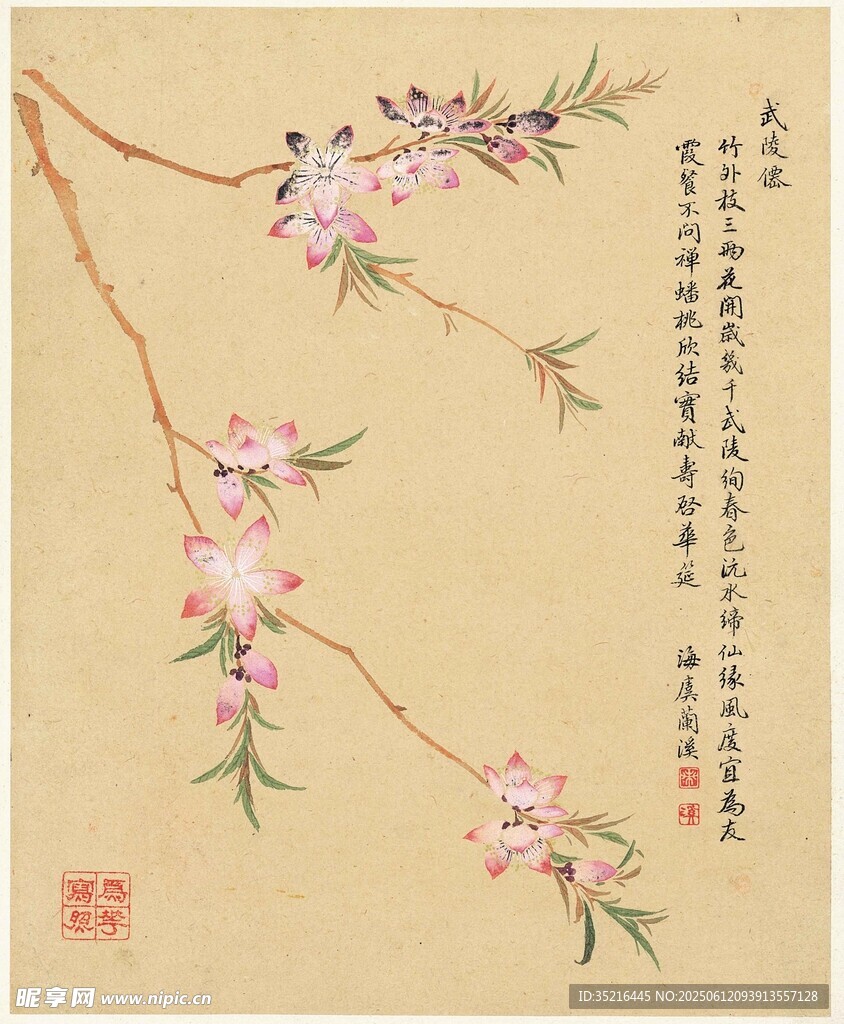 武陵僊
竹外枝三兩花開歲幾千武陵絢春色沅水締仙緣風度宜為友
霞餐不問禪蟠桃欣結實献壽啓華筵
海虞蘭溪
為花
寫照
昵享网 www.nipic.cn
ID:35216445 NO:20250612093913557128